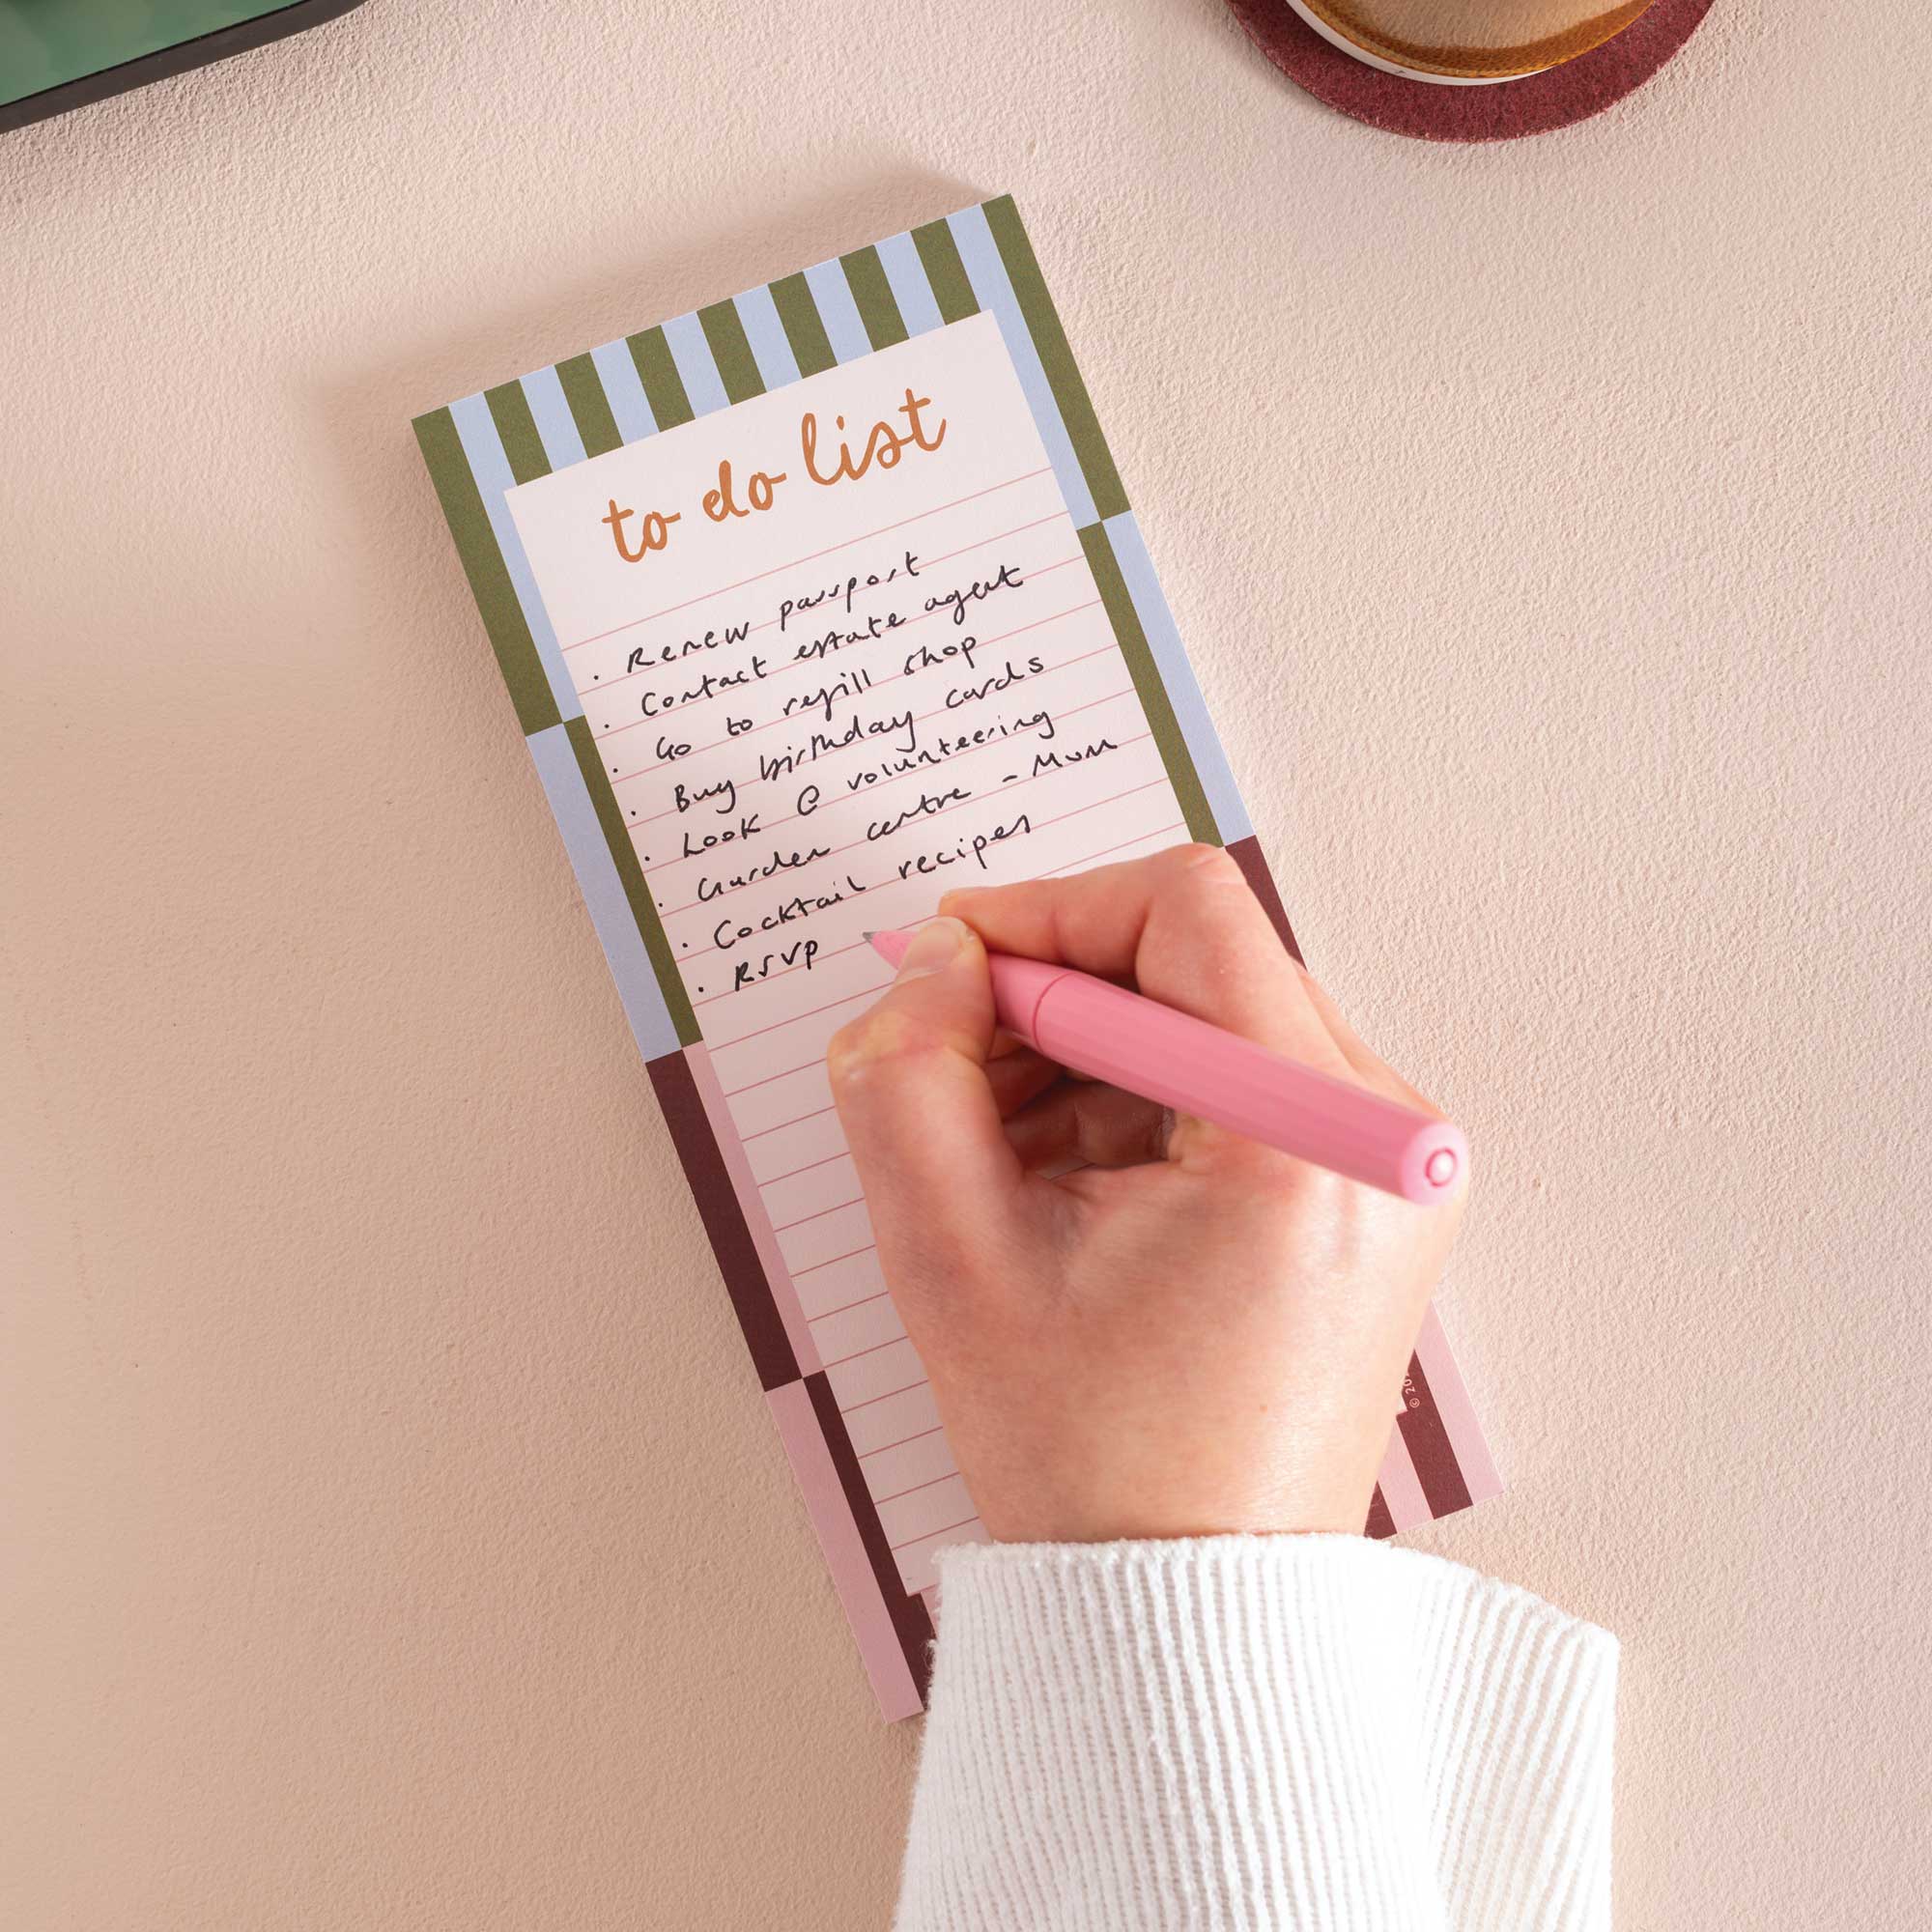 to do list
· Renew passport
· Contact estate agent
· Go to refill shop
· Buy birthday cards
· Look @ volunteering
· Garden centre - Mum
· Cocktail recipes
· RSVP
©